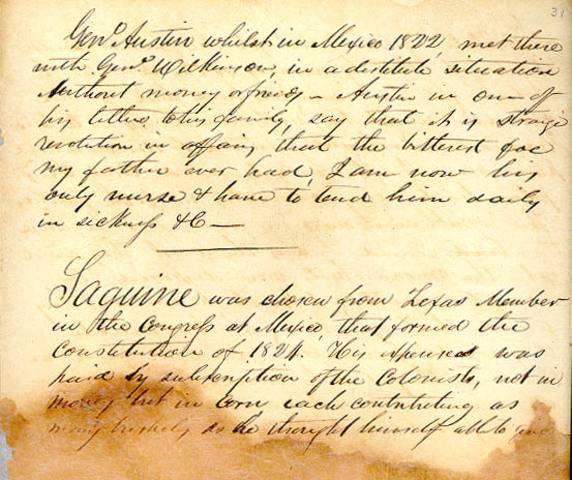 31
Genl. Austin whilst in Mexico 1822, met there
with Genl. Wilkinson, in a destitute situation
Without money or friends – Austin in one of
his letters to his family, say that it is strange
revolution in affairs that the bitterest foe
my father ever had, I am now his
only nurse & have to tend him daily
in sickness &C —
Saguine was chosen from Texas Member
in the Congress at Mexico that formed the
Constitution of 1824. His expenses was
paid by subscription of the Colonists, not in
money but in Corn each contributing as
many bushels as he thought himself able to give